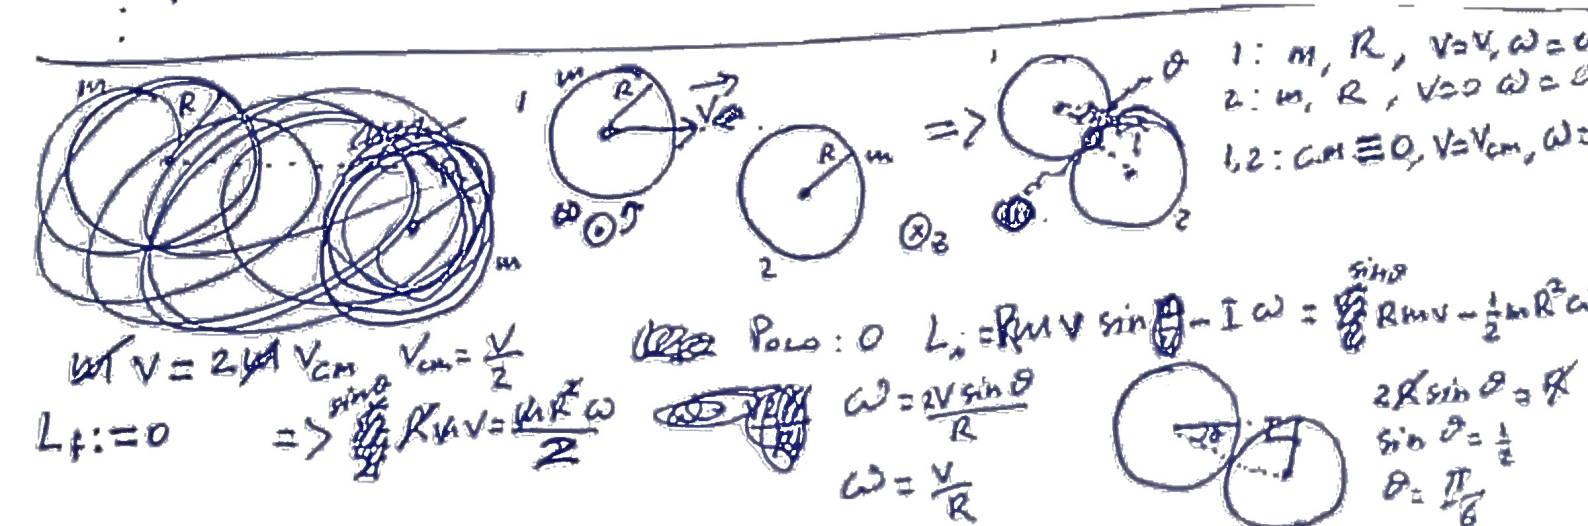 m
R
m
1
m
R
V
R
m
2
ω
z
=>
1
θ
2
1: m, R, V=V, ω=
2: m, R, V=0 ω=
1,2: CM ≡ 0, V=V_CM, ω=
m V = 2m V_CM V_CM = V/2
Polo: O L_i = RmV sinθ - I ω = sinθ RmV - 1/2 mR² ω
L_f := 0 => sinθ RmV = mR²ω/2
ω = 2V sinθ/R
ω = V/R
2R sin θ = R
sin θ = 1/2
θ = π/6